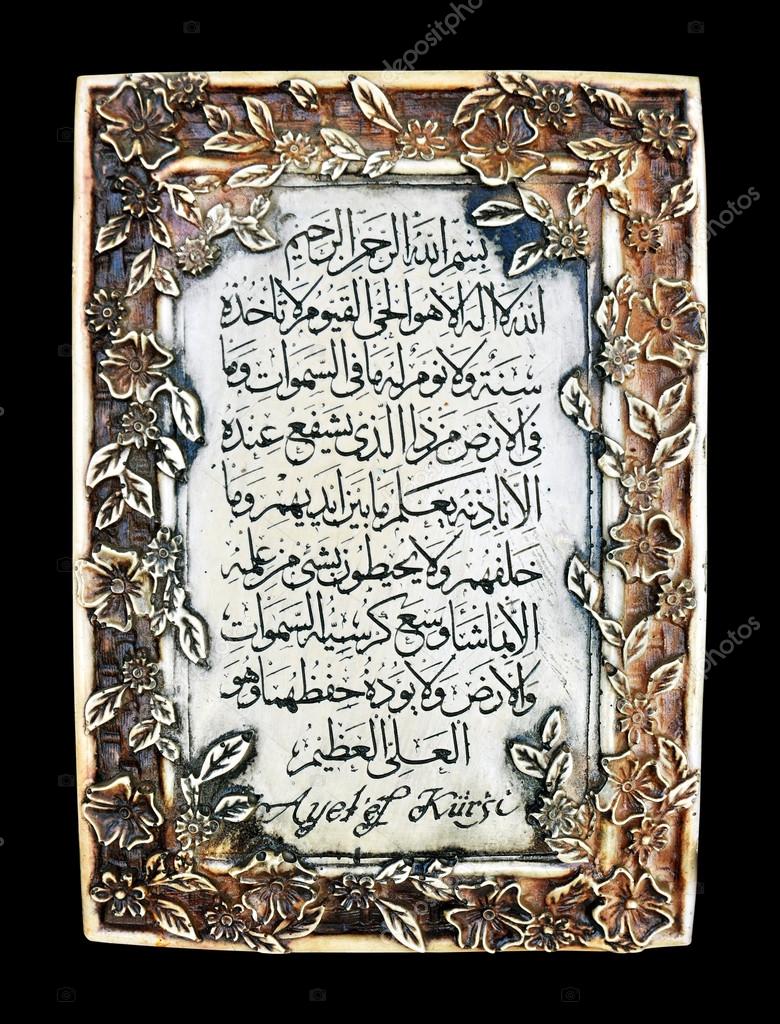 بسم الله الرحمن الرحيم
الله لا اله الا هو الحي القيوم لا تأخذه
سنة ولا نوم له ما في السموات وما
في الارض من ذا الذي يشفع عنده
الا باذنه يعلم ما بين ايديهم وما
خلفهم ولا يحيطون بشئ من علمه
الا بما شا وسع كرسيه السموات
والارض ولا يوده حفظهما وهو
العلي العظيم
Ayet el Kürsi
depositphotos